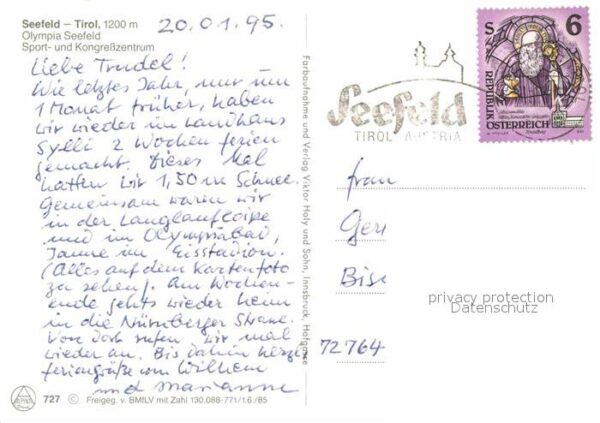 Seefeld – Tirol, 1200 m
Olympia Seefeld
Sport- und Kongreßzentrum
20.01.95.
Liebe Trudel!
Wie letztes Jahr, nur um
1 Monat früher, haben
wir wieder im Landhaus
Sylli 2 Wochen Ferien
gemacht. Dieses Mal
hatten wir 1,50 m Schnee.
Gemeinsam waren wir
in der Langlaufloipe
und im Olympiabad,
Sauna im Eisstadion.
(Alles auf dem Kartenfoto
zu sehen). Am Wochen-
ende gehts wieder heim
in die Nürnberger Strasse.
Von dort rufen wir mal
wieder an. Bis dahin herzl.
Feriengrüße von Wilhelm
und Marianne
727 © Freigeg. v. BMfLV mit Zahl 130.088-771/1.6./85
Farbaufnahme und Verlag Viktor Holy und Sohn, Innsbruck, Hofgasse
Seefeld
TIROL AUSTRIA
S 6
REPUBLIK
ÖSTERREICH
Frau
Ger
Bis
72764
privacy protection
Datenschutz